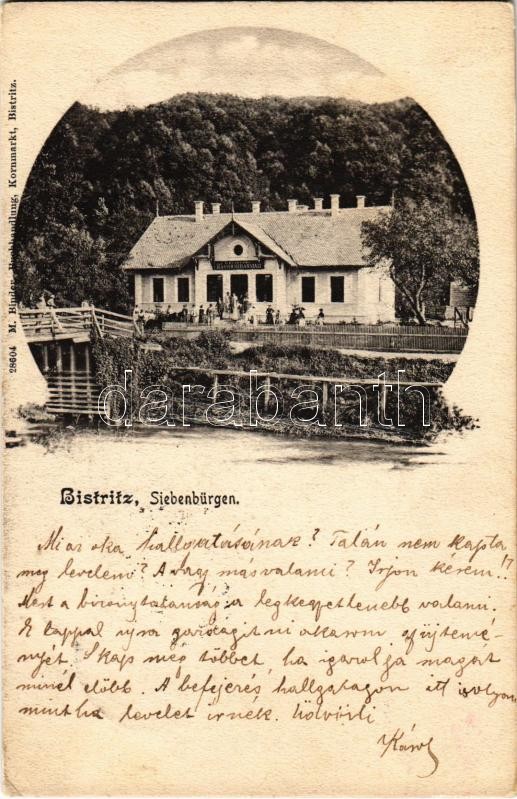 28604 M. Binder, Buchhandlung, Kornmarkt, Bistritz.
darabanth
Bistritz, Siebenbürgen.
Mi az oka hallgatásának? Talán nem kapta
meg levelem? Avagy más valami? Irjon kérem!!
Mert a bizonytalanság a legkegyetlenebb valami.
E lappal ujra gazdagitni akarom gyüjtemé-
nyét. S kap még többet, ha igazolja magát
minél előbb. A befejezés hallgatagon itt is olyan
mintha levelet irnék. Üdvözli
Károly